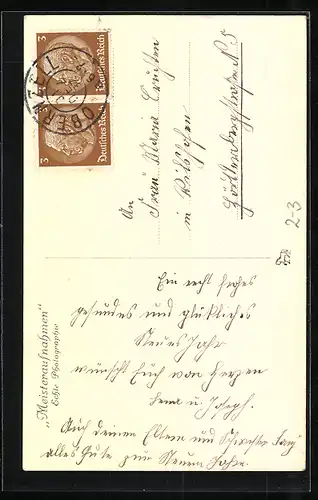 3
Deutsches Reich
3
Deutsches Reich
OBERNZELL
An
Frau Maria
in Vilshofen
N. 5
2-3
"Meisteraufnahmen"
Echte Photographie
Ein recht frohes
gesundes und glückliches
Neues Jahr
wünscht Euch von Herzen
u. Joseph.
Auch deinen Eltern und Schwester
alles Gute zum Neuen Jahre.